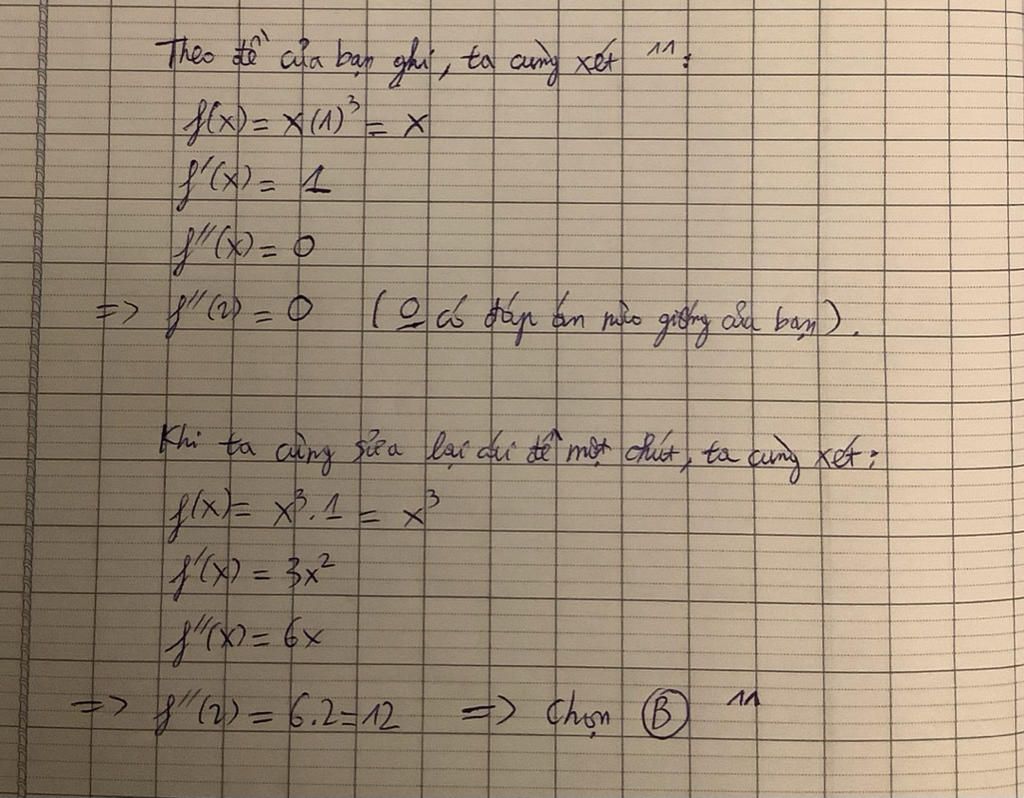 Theo đề của bạn ghi, ta cùng xét ^^:
f(x) = x(1)³ = x
f'(x) = 1
f''(x) = 0
=> f''(2) = 0 (0 có đáp án nào giống của bạn).
Khi ta cùng sửa lại cái đề một chút, ta cùng xét:
f(x) = x³.1 = x³
f'(x) = 3x²
f''(x) = 6x
=> f''(2) = 6.2=12 => Chọn B ^^